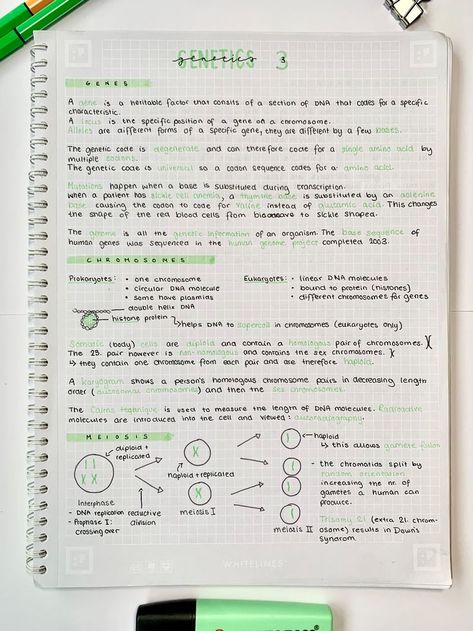 GENETICS 3
genetics 3
GENES
A gene is a heritable factor that consits of a section of DNA that codes for a specific
characteristic.
A locus is the specific position of a gene on a chromosome.
Alleles are different forms of a specific gene, they are different by a few bases.
The genetic code is degenerate and can therefore code for a single amino acid by
multiple codons.
The genetic code is universal so a codon sequence codes for a amino acid.
Mutations happen when a base is substituted during transcription.
when a patient has sickle cell anemia, a thymine base is substituted by an adenine
base causing the codon to code for valine instead of glutamic acid. This changes
the shape of the red blood cells from biconcave to sickle shaped.
The genome is all the genetic information of an organism. The base sequence of
human genes was sequenced in the human genome project completed 2003.
CHROMOSOMES
Prokaryotes: • one chromosome
• circular DNA molecule
• some have plasmids
Eukaryotes: • linear DNA molecules
• bound to protein (histones)
• different chromosomes for genes
double helix DNA
histone protein
↳ helps DNA to supercoil in chromosomes (eukaryotes only)
Somatic (body) cells are diploid and contain a homologous pair of chromosomes.
The 23. pair however is non-homologous and contains the sex chromosomes.
↳ they contain one chromosome from each pair and are therefore haploid.
A karyogram shows a person's homologous chromosome pairs in decreasing length
order (autosomal chromosomes) and then the sex chromosomes.
The Cairns technique is used to measure the length of DNA molecules. Radioactive
molecules are introduced into the cell and viewed: autoradiography.
MEIOSIS
diploid +
replicated
Interphase
- DNA replication
- Prophase I:
crossing over
reductive
division
haploid + replicated
meiosis I
meiosis II
haploid
↳ this allows gamete fusion
- the chromatids split by
random orientation
increasing the nr. of
gametes a human can
produce.
Trisomy 21 (extra 21. chrom-
osome) results in Down's
syndrom
WHITELINES